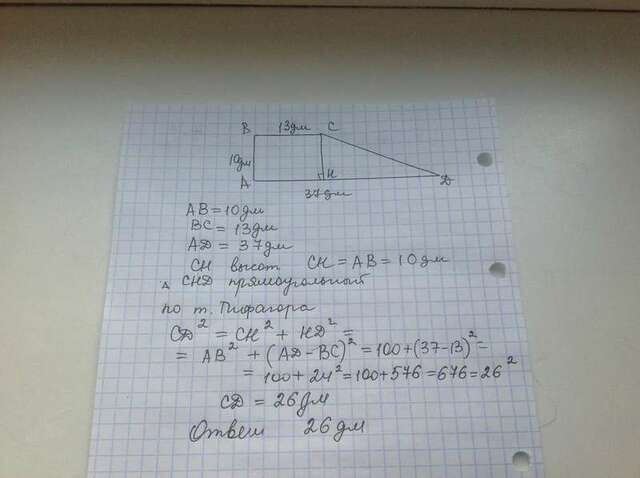 B 13дм C
10дм
A H D
37дм
AB = 10дм
BC = 13дм
AD = 37дм
CH высот CH = AB = 10дм
Δ CHD прямоугольный
по т. Пифагора
CD² = CH² + HD² =
= AB² + (AD - BC)² = 100 + (37 - 13)² =
= 100 + 24² = 100 + 576 = 676 = 26²
CD = 26дм
Ответ 26 дм